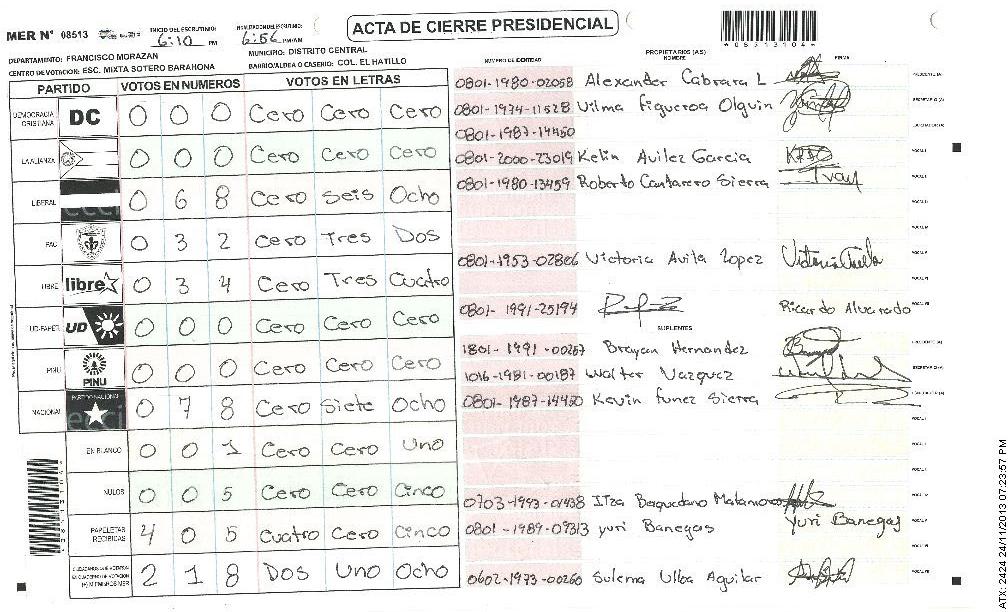 MER N° 08513 INICIO DEL ESCRUTINIO: 6:10 PM FINALIZACION DEL ESCRUTINIO: 6:56 PM/AM
ACTA DE CIERRE PRESIDENCIAL
*08513104*
DEPARTAMENTO: FRANCISCO MORAZAN MUNICIPIO: DISTRITO CENTRAL
CENTRO DE VOTACION: ESC. MIXTA SOTERO BARAHONA BARRIO/ALDEA O CASERIO: COL. EL HATILLO
PARTIDO VOTOS EN NUMEROS VOTOS EN LETRAS
DEMOCRACIA CRISTIANA DC 0 0 0 Cero Cero Cero
LA ALIANZA 0 0 0 Cero Cero Cero
LIBERAL 0 6 8 Cero Seis Ocho
PAC 0 3 2 Cero Tres Dos
LIBRE libre 0 3 4 Cero Tres Cuatro
UD-FAPER UD 0 0 0 Cero Cero Cero
PINU PINU 0 0 0 Cero Cero Cero
NACIONAL PARTIDO NACIONAL 0 7 8 Cero Siete Ocho
EN BLANCO 0 0 1 Cero Cero Uno
NULOS 0 0 5 Cero Cero Cinco
PAPELETAS RECIBIDAS 4 0 5 Cuatro Cero Cinco
2 1 8 Dos Uno Ocho
NUMERO DE IDENTIDAD PROPIETARIOS (AS) NOMBRE FIRMA
0801-1980-02058 Alexander Cabrara L PRESIDENTE (A)
0801-1974-11528 Vilma Figueroa Olguin SECRETARIO (A)
0801-1987-14450 ESCRUTADOR (A)
0801-2000-23019 Kelin Avilez Garcia VOCAL I
0801-1980-13459 Roberto Cantarero Sierra Ivan VOCAL II
VOCAL III
VOCAL IV
0801-1953-02806 Victoria Avila Lopez VOCAL V
VOCAL VI
0801-1991-25194 Ricardo Alvarado VOCAL VII
SUPLENTES
1801-1991-00267 Brayan Hernandez PRESIDENTE (A)
1016-1981-00187 Walter Vazquez SECRETARIO (A)
0801-1987-14450 Kevin Funez Sierra ESCRUTADOR (A)
VOCAL I
VOCAL II
VOCAL III
0703-1993-01438 Itza Baquedano VOCAL IV
0801-1989-09313 yuri Banegas yuri Banegas VOCAL V
VOCAL VI
0602-1973-00260 Sulema Ulloa Aguilar VOCAL VII
ATX: 2424 24/11/2013 07:23:57 PM